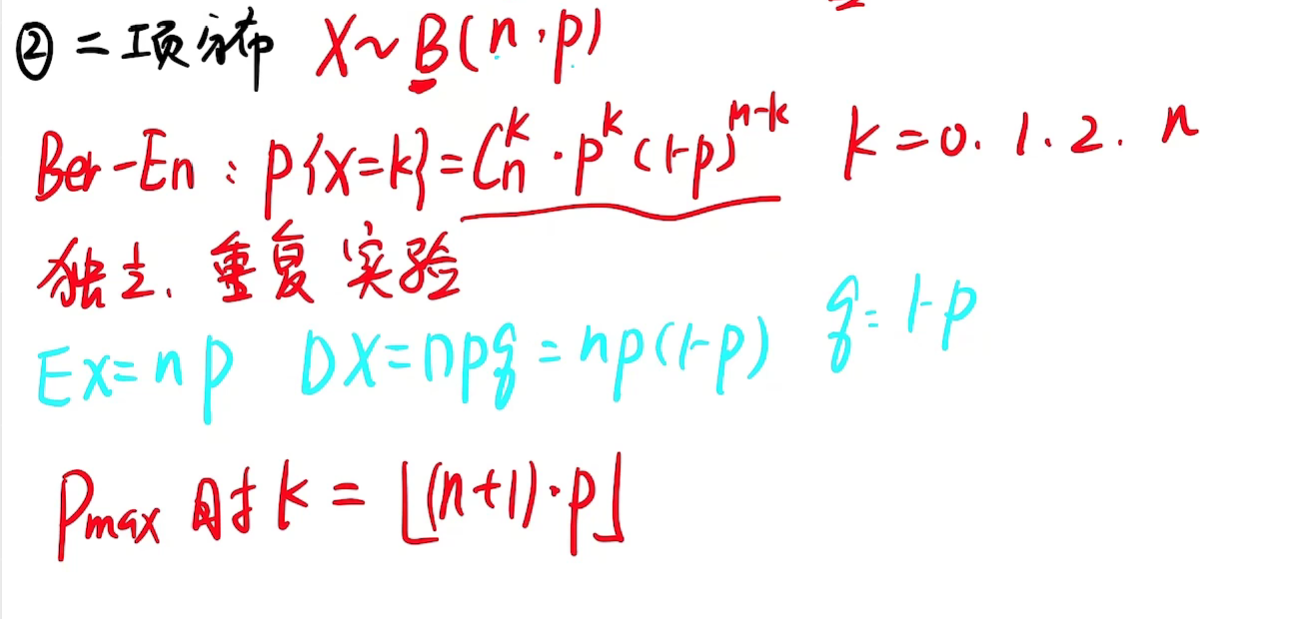 ② 二项分布 X~B(n,p)
Ber-En: P{X=k}=C_n^k·p^k(1-p)^{n-k} k=0.1.2.n
独立、重复实验
EX=np DX=npq=np(1-p) q=1-p
Pmax时 k=⌊(n+1)·p⌋